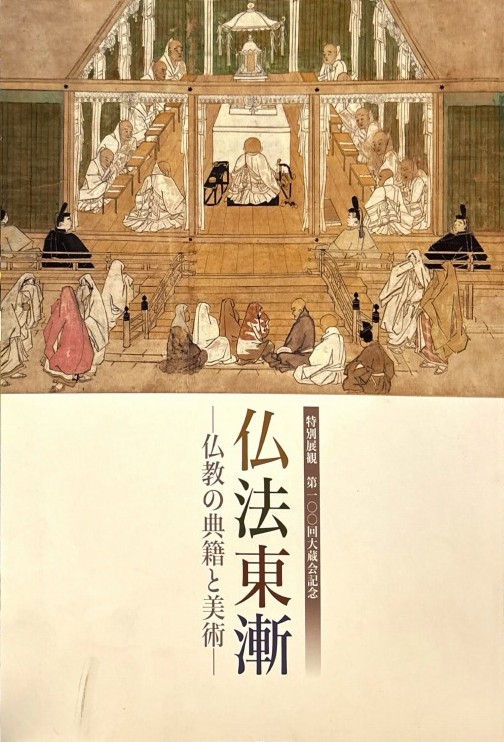 特別展観 第一〇〇回大蔵会記念
仏法東漸
―仏教の典籍と美術―